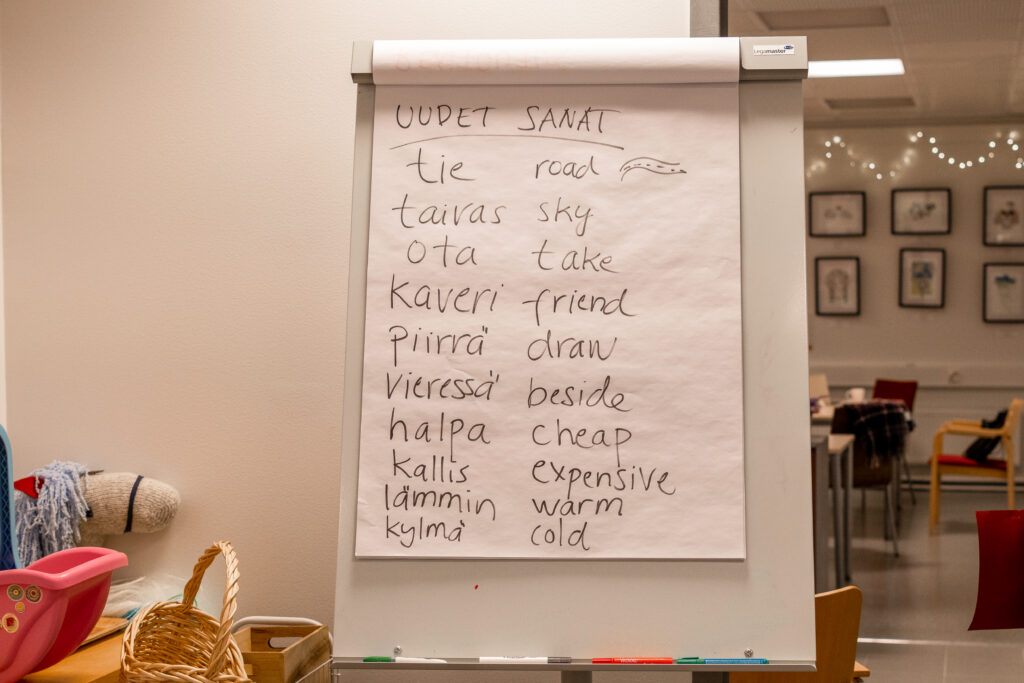 Legamaster
UUDET SANAT
tie road
taivas sky
ota take
kaveri friend
piirrä draw
vieressä beside
halpa cheap
kallis expensive
lämmin warm
kylmä cold